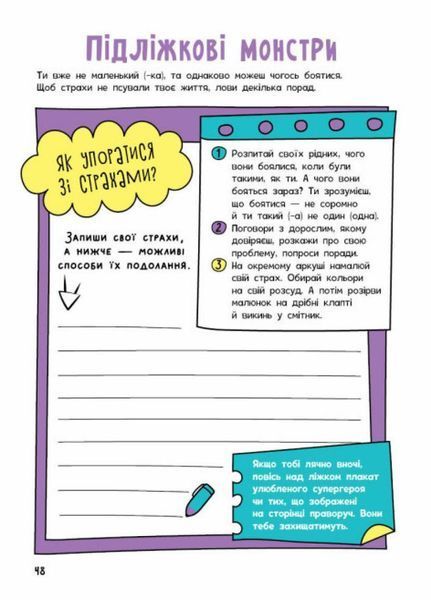 Підліжкові монстри
Ти вже не маленький (-ка), та однаково можеш чогось боятися.
Щоб страхи не псували твоє життя, лови декілька порад.
Як упоратися
зі страхами?
1 Розпитай своїх рідних, чого
вони боялися, коли були
такими, як ти. А чого вони
бояться зараз? Ти зрозумієш,
що боятися — не соромно
й ти такий (-а) не один (одна).
2 Поговори з дорослим, якому
довіряєш, розкажи про свою
проблему, попроси поради.
3 На окремому аркуші намалюй
свій страх. Обирай кольори
на свій розсуд. А потім розірви
малюнок на дрібні клапті
й викинь у смітник.
Запиши свої страхи,
а нижче — можливі
способи їх подолання.
Якщо тобі лячно вночі,
повісь над ліжком плакат
улюбленого супергероя
чи тих, що зображені
на сторінці праворуч. Вони
тебе захищатимуть.
48